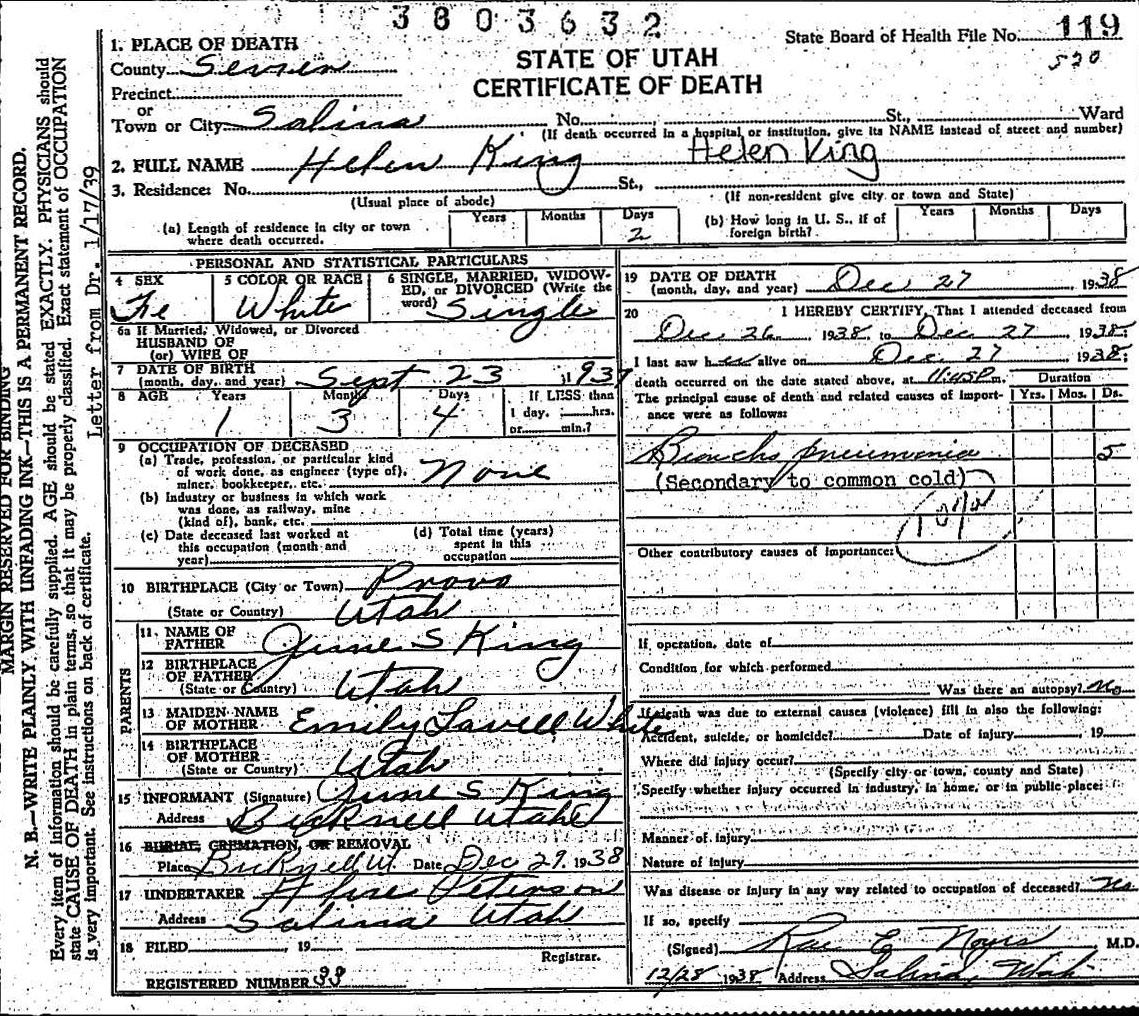 3803632
State Board of Health File No. 119
520
STATE OF UTAH
CERTIFICATE OF DEATH
1. PLACE OF DEATH
County Sevier
Precinct
or
Town or City Salina No. St., Ward
(If death occurred in a hospital or institution, give its NAME instead of street and number)
2. FULL NAME Helen King Helen King
3. Residence: No. St.,
(Usual place of abode) (If non-resident give city or town and State)
(a) Length of residence in city or town where death occurred. Years Months Days 2
(b) How long in U. S., if of foreign birth? Years Months Days
PERSONAL AND STATISTICAL PARTICULARS
4 SEX Fe
5 COLOR OR RACE White
6 SINGLE, MARRIED, WIDOWED, or DIVORCED (Write the word) Single
6a If Married, Widowed, or Divorced
HUSBAND OF
(or) WIFE OF
7 DATE OF BIRTH
(month, day, and year) Sept 23 1937
8 AGE Years 1 Months 3 Days 4
If LESS than
1 day, hrs.
or min.?
9 OCCUPATION OF DECEASED
(a) Trade, profession, or particular kind
of work done, as engineer (type of),
miner, bookkeeper, etc. None
(b) Industry or business in which work
was done, as railway, mine
(kind of), bank, etc.
(c) Date deceased last worked at
this occupation (month and
year)
(d) Total time (years)
spent in this
occupation
10 BIRTHPLACE (City or Town) Provo
(State or Country) Utah
PARENTS
11. NAME OF
FATHER June S King
12 BIRTHPLACE
OF FATHER
(State or Country) Utah
13 MAIDEN NAME
OF MOTHER Emily Lavell White
14 BIRTHPLACE
OF MOTHER
(State or Country) Utah
15 INFORMANT (Signature) June S King
Address Bicknell Utah
16 BURIAL, CREMATION, OR REMOVAL
Place Bicknell Ut. Date Dec 29, 1938
17 UNDERTAKER Peterson
Address Salina Utah
18 FILED , 19
Registrar.
REGISTERED NUMBER 33
19 DATE OF DEATH
(month, day, and year) Dec 27 1938
20 I HEREBY CERTIFY, That I attended deceased from
Dec 26 1938, to Dec 27 1938;
I last saw her alive on Dec. 27 1938;
death occurred on the date stated above, at 11:45P m.
The principal cause of death and related causes of importance were as follows:
Duration
Yrs. Mos. Ds.
Broncho pneumonia 5
(Secondary to common cold)
107a
Other contributory causes of importance:
If operation, date of
Condition for which performed
Was there an autopsy? No
If death was due to external causes (violence) fill in also the following:
Accident, suicide, or homicide? Date of injury , 19
Where did injury occur?
(Specify city or town, county and State)
Specify whether injury occurred in industry, in home, or in public place:
Manner of injury
Nature of injury
Was disease or injury in any way related to occupation of deceased? No
If so, specify
(Signed) Rae E Noyes M.D.
12/28 1938 Address Salina, Utah
MARGIN RESERVED FOR BINDING
N. B.—WRITE PLAINLY, WITH UNFADING INK—THIS IS A PERMANENT RECORD.
Every item of information should be carefully supplied. AGE should be stated EXACTLY. PHYSICIANS should
state CAUSE OF DEATH in plain terms, so that it may be properly classified. Exact statement of OCCUPATION
is very important. See instructions on back of certificate.
Letter from Dr. 1/17/39